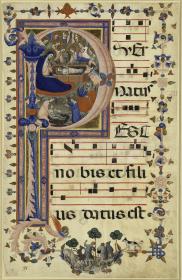 PVEr
natus
EST
no bis et fili
us datus est